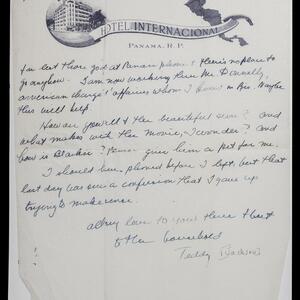 HOTEL INTERNACIONAL
PANAMA, R. P.
I'm last there got at Panair plane & there's no place to
go anyhow. I am now working thru Mr. Donnelly,
american chargé d'affaires whom I knew in Rio. Maybe
this will help.
How are you all & the beautiful ? And
what makes with the movie, I wonder? And
how is Blackie? Please give him a pat for me.
I should have phoned before I left, but that
last day was such a confusion that I gave up
trying to make sense.
all my love to you three & best
to the household
Teddy (Jackson)